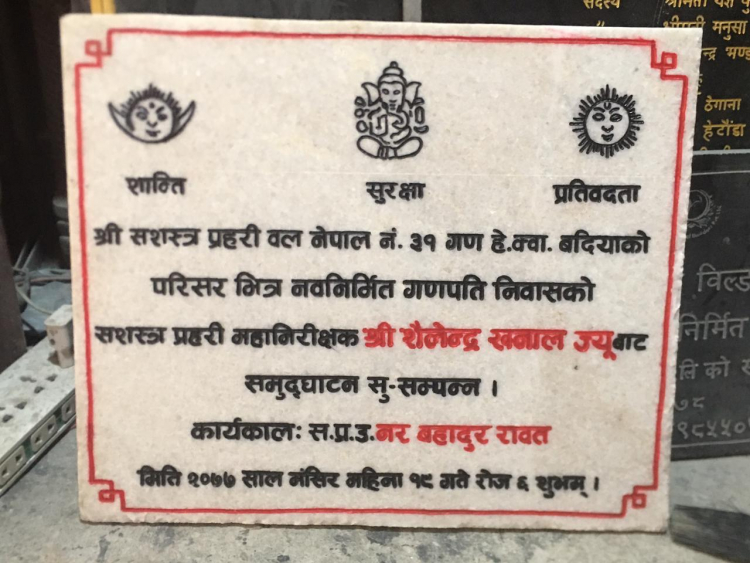 शान्ति सुरक्षा प्रतिवदता
श्री सशस्त्र प्रहरी वल नेपाल नं. ३१ गण हे.क्वा. बदियाको
परिसर भित्र नवनिर्मित गणपति निवासको
सशस्त्र प्रहरी महानिरीक्षक श्री शैलेन्द्र खनाल ज्यूबाट
समुद्घाटन सु-सम्पन्न ।
कार्यकालः स.प्र.उ.नर बहादुर रावत
मिति २०७७ साल मंसिर महिना १९ गते रोज ६ शुभम् ।
सदस्य
"
मनुसा
ठेगाना
हेटौंडा
निर्मित
को
७८